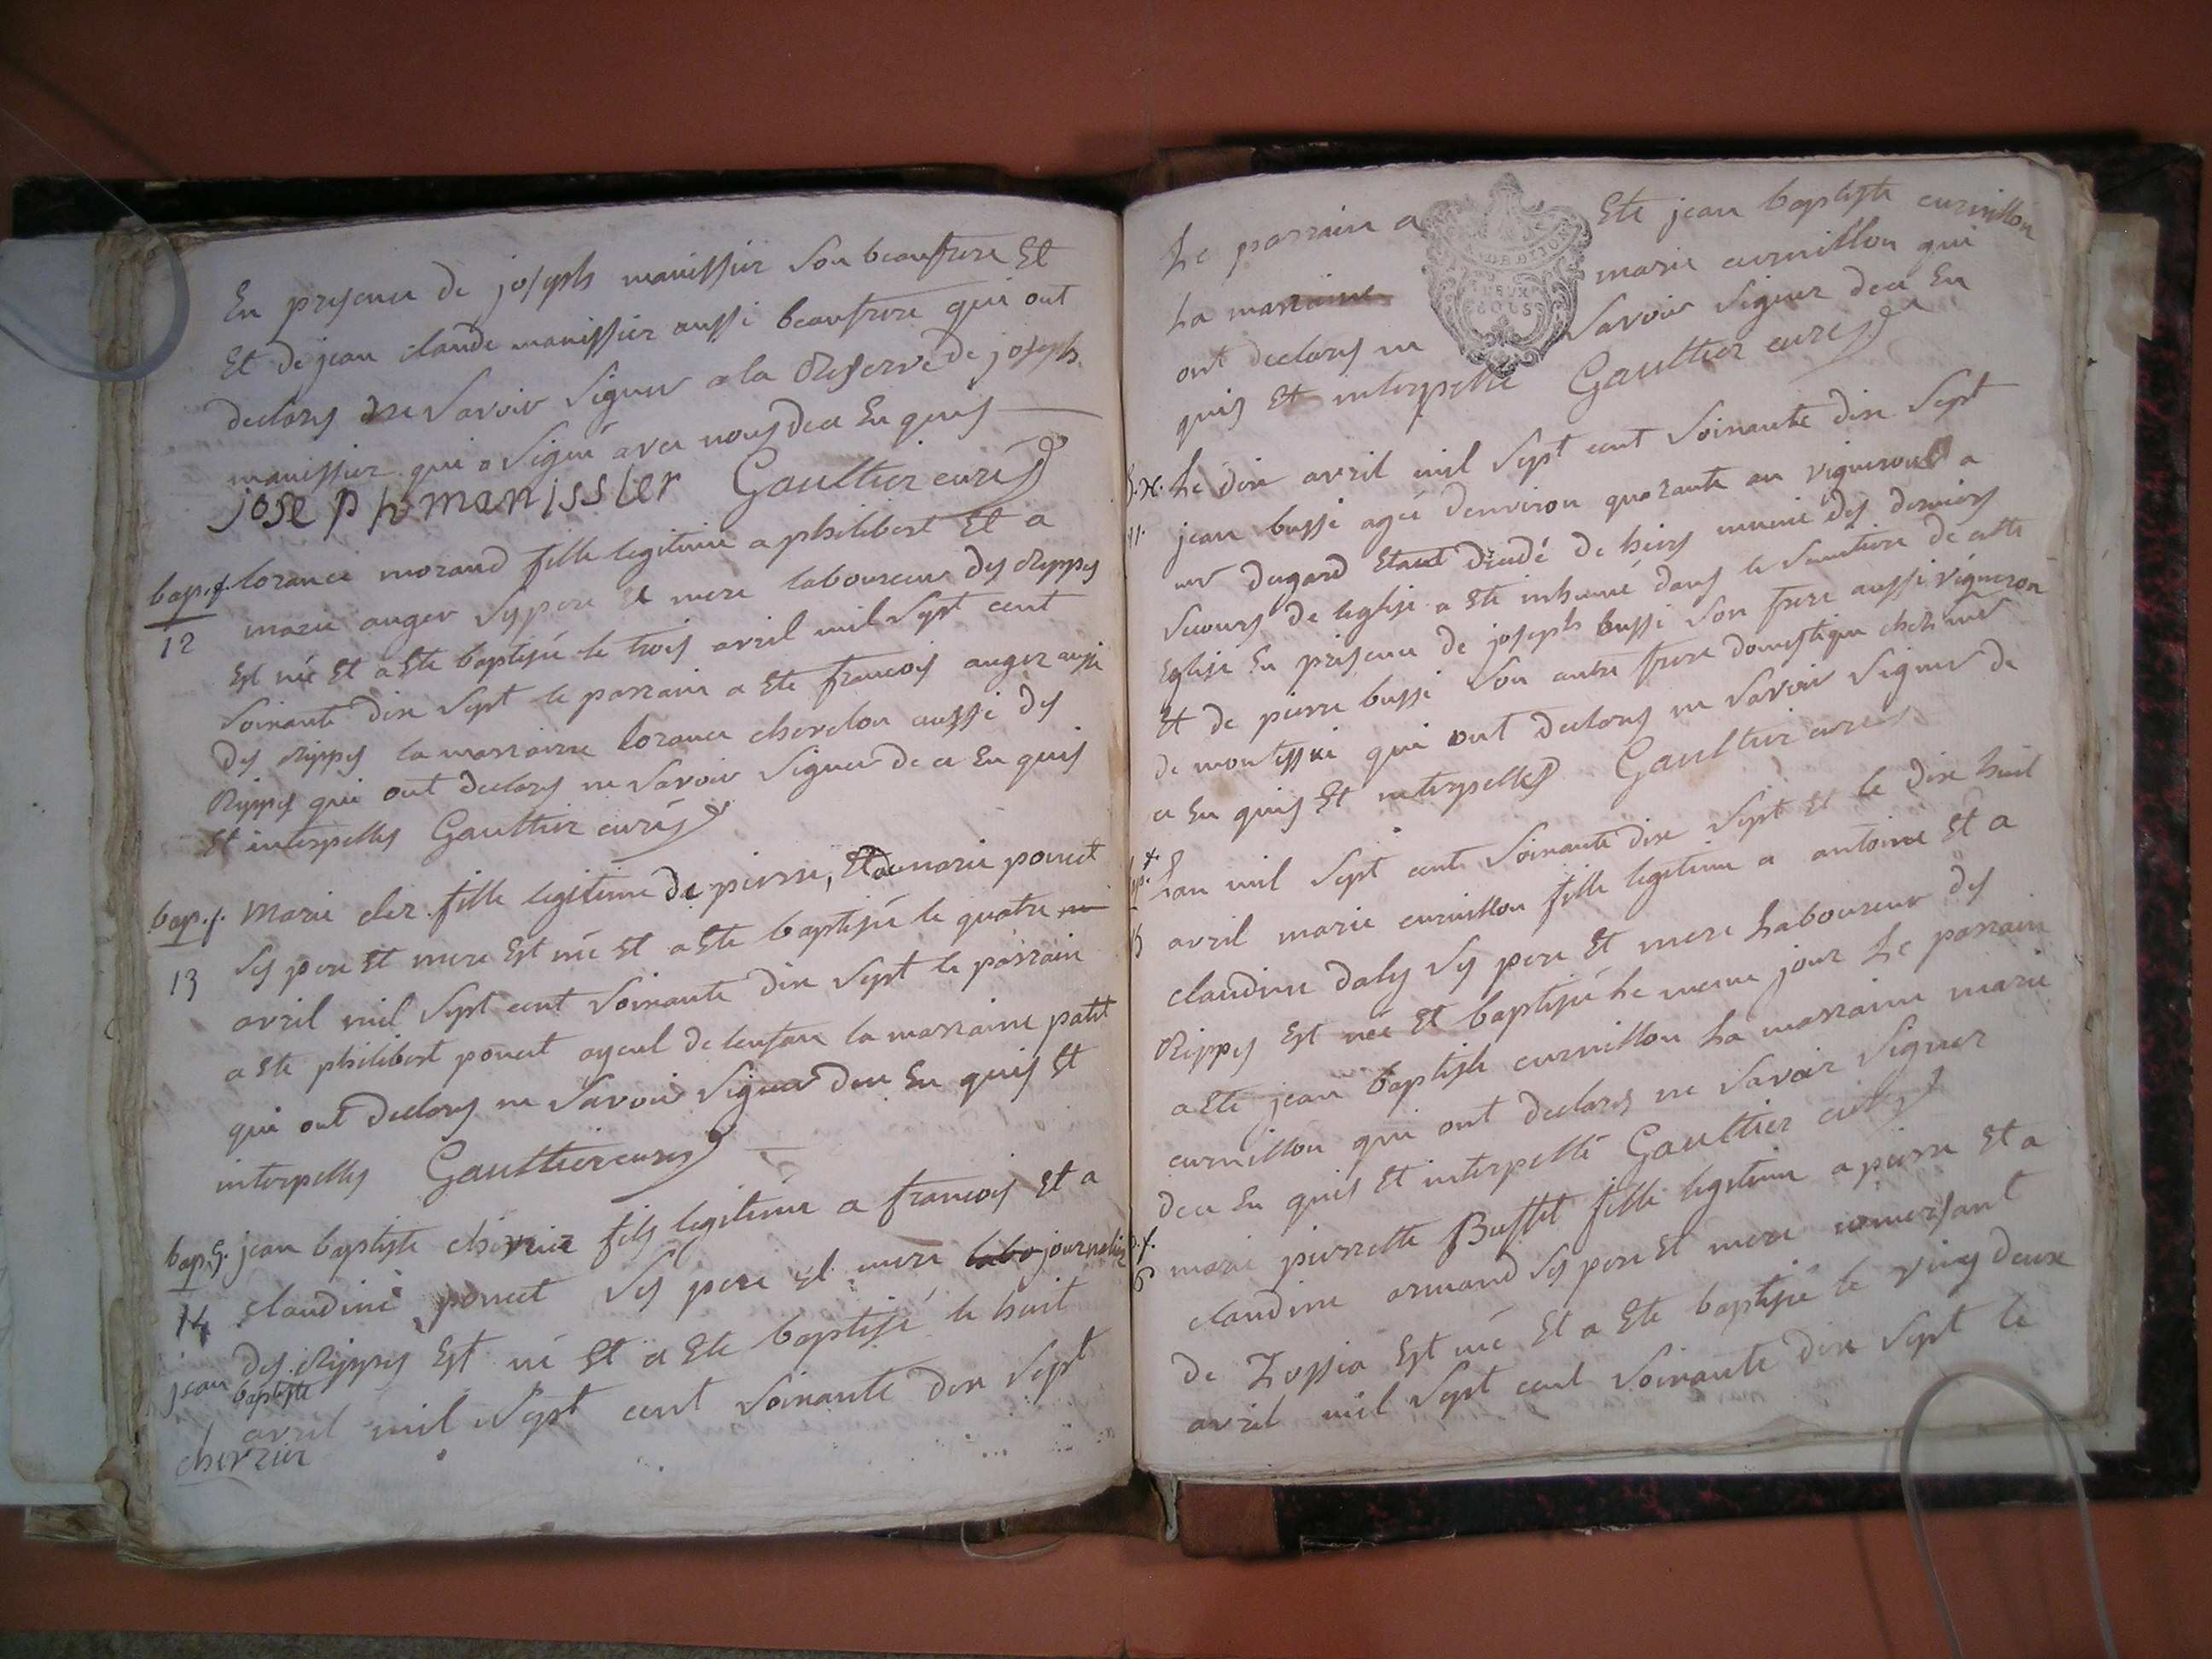 En presence de joseph manissier son beaufrere Et
Et de jean claude manissier aussi beaufrere qui ont
declarés ne savoir signer a la Reserve de joseph
manissier qui a signé avec nous de ce Enquis
joseph manissier Gaultier curé
bap. f. lorance morand fille legitime a philibert Et a
12 marie auger ses pere Et mere laboureur des Rippes
Est née Et a Ete baptisée le trois avril mil sept cent
soixante dix sept le parrain a Ete francois auger aussi
des Rippes la marraine lorance chevelon aussi des
Rippes qui ont declarés ne savoir signer de ce Enquis
Et interpellés Gaultier curé
bap. f. Marie cler fille legitime de pierre, Et de marie poncet
13 ses pere Et mere Est née Et a Ete baptisée le quatre
avril mil sept cent soixante dix sept le parrain
a Ete philibert poncet ayeul de lenfan la marraine
qui ont declarés ne savoir signer de ce Enquis Et
interpellés Gaultier curé
bap. G. jean baptiste chevrier fils legitime a francois Et a
14 claudine poncet ses pere Et mere labo journalier
des Rippes Est né Et a Ete baptisé le huit
jean baptiste
avril mil sept cent soixante dix sept
chevrier
Le parrain a Ete jean baptiste curnillon
La marraine marie curnillon qui
ont declarés ne savoir signer de ce En
quis Et interpellé Gaultier curé
DEUX
SOUS
Le dix avril mil sept cent soixante dix sept
jean bussi agé denviron quarante an vigneron a
mr dugard Etant decedé de hiers munie des derniers
secours de leglise a Ete inhumé dans le simetiere de cette
Eglise En presence de joseph bussi son frere aussi vigneron
Et de pierre bussi son autre frere domestique chez mr
de montessui qui ont declarés ne savoir signer de
ce Enquis Et interpellés Gaultier curé
Lan mil sept cent soixante dix sept Et le dix huit
avril marie curnillon fille legitime a antoine Et a
claudine daly ses pere Et mere Laboureur des
Rippes Est née Et baptisée Le meme jour Le parrain
a Ete jean baptiste curnillon La marraine marie
curnillon qui ont declarés ne savoir signer
de ce Enquis Et interpellé Gaultier curé
marie pierrette Buffet fille legitime a pierre Et a
claudine armand ses pere Et mere comersant
de Lossia Est née Et a Ete baptisée le ving deux
avril mil sept cent soixante dix sept le